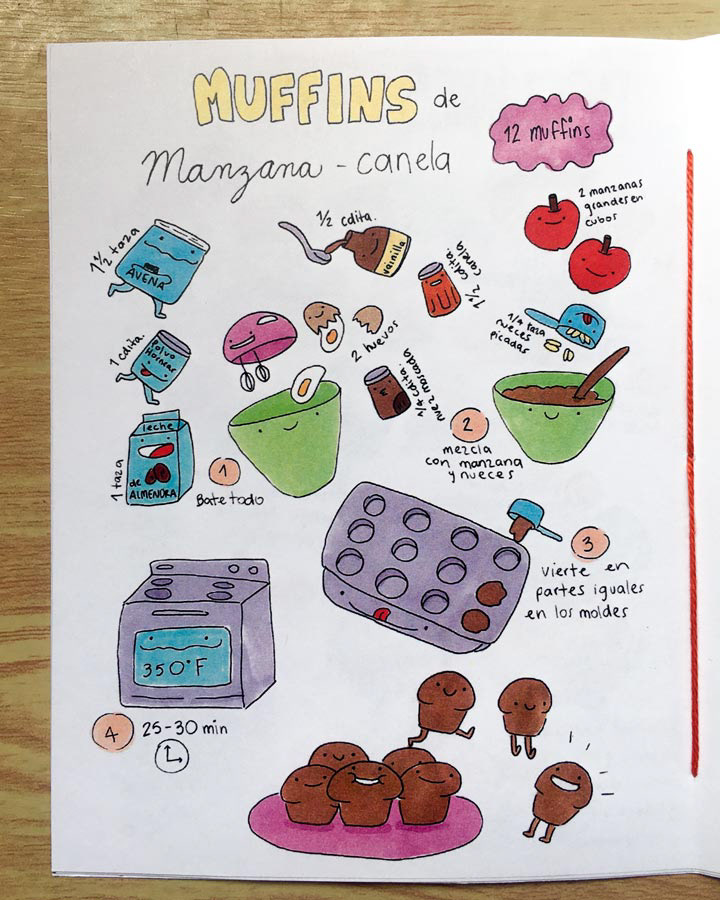 MUFFINS de
Manzana - canela
12 muffins
1 1/2 taza
AVENA
1/2 cdita.
vainilla
1 1/2 cdita.
canela
2 manzanas
grandes en
cubos
1 cdita.
Polvo
Hornear
2 huevos
1/4 cdita.
nuez moscada
1/4 taza
nueces
picadas
1 taza
leche
de
ALMENDRA
1
Bate todo
2
mezcla
con manzana
y nueces
3
vierte en
partes iguales
en los moldes
350°F
4
25-30 min